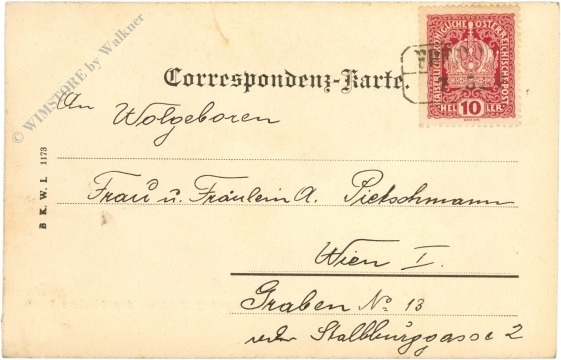 Correspondenz-Karte.
KAISERLICHE KÖNIGLICHE ÖSTERREICHISCHE POST
HEL 10 LER
An Wolgeboren
Frau u. Fräulein A. Pietschmann
Wien I.
Graben No 13
Stallburggasse 2
B. K. W. I. 1173
© WIMSTORE by Walkner